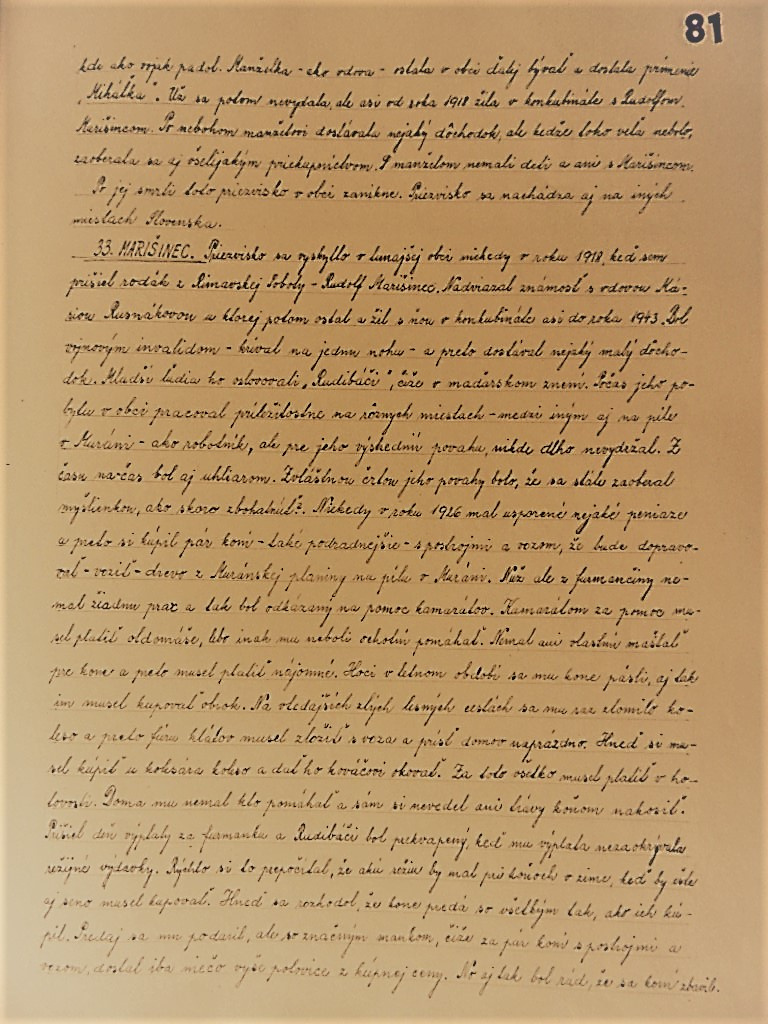 81
kde ako vojak padol. Manželka - ako vdova - ostala v obci ďalej bývať a dostala prímenie
„Mihálka". Už sa potom nevydala, ale asi od roka 1918 žila v konkubináte s Rudolfom
Marišincom. Po nebohom manželovi dostávala nejaký dôchodok, ale keďže toho veľa nebolo,
zaoberala sa aj všelijakým priekupníctvom. S manželom nemali deti a ani s Marišincom.
Po jej smrti toto priezvisko v obci zanikne. Priezvisko sa nachádza aj na iných
miestach Slovenska.
33. MARIŠINEC. Priezvisko sa vyskytlo v tunajšej obci niekedy v roku 1918, keď sem
prišiel rodák z Rimavskej Soboty - Rudolf Marišinec. Nadviazal známosť s vdovou Má-
riou Rusnákovou u ktorej potom ostal a žil s ňou v konkubináte asi do roka 1943. Bol
vojnovým invalidom - kríval na jednu nohu - a preto dostával nejaký malý dôcho-
dok. Mladší ľudia ho oslovovali „Rudibáči", čiže v maďarskom znení. Počas jeho po-
bytu v obci pracoval príležitostne na rôznych miestach - medzi iným aj na píle
v Muráni - ako robotník, ale pre jeho výstrednú povahu, nikde dlho nevydržal. Z
času na-čas bol aj uhliarom. Zvláštnou črtou jeho povahy bolo, že sa stále zaoberal
myšlienkou, ako skoro zbohatnúť? Niekedy v roku 1926 mal usporené nejaké peniaze
a preto si kúpil pár koní - také podradnejšie - s postrojmi a vozom, že bude dopravo-
vať - voziť - drevo z Muránskej planiny na pílu v Muráni. Nuž ale z furmančiny ne-
mal žiadnu prax a tak bol odkázaný na pomoc kamarátov. Kamarátom za pomoc mu-
sel platiť oldomáše, lebo inak mu neboli ochotní pomáhať. Nemal ani vlastnú maštaľ
pre kone a preto musel platiť nájomné. Hoci v letnom období sa mu kone pásli, aj tak
im musel kupovať obrok. Na vtedajších zlých lesných cestách sa mu raz zlomilo ko-
leso a preto fúru klátov musel zložiť s voza a prísť domov naprázdno. Hneď si mu-
sel kúpiť u kolesára koleso a dať ho kováčovi okovať. Za toto všetko musel platiť v ho-
tovosti. Doma mu nemal kto pomáhať a sám si nevedel ani trávy koňom nakosiť.
Prišiel deň výplaty za furmanku a Rudibáči bol prekvapený, keď mu výplata nezaokrývala
režijné výdavky. Rýchlo si to prepočítal, že akú réžiu by mal pri koňoch v zime, keď by ešte
aj seno musel kupovať. Hneď sa rozhodol, že kone predá so všetkým tak, ako ich kú-
pil. Predaj sa mu podaril, ale so značným mankom, čiže za pár koní s postrojmi a
vozom, dostal iba niečo vyše polovice z kúpnej ceny. No aj tak bol rád, že sa koní zbavil.